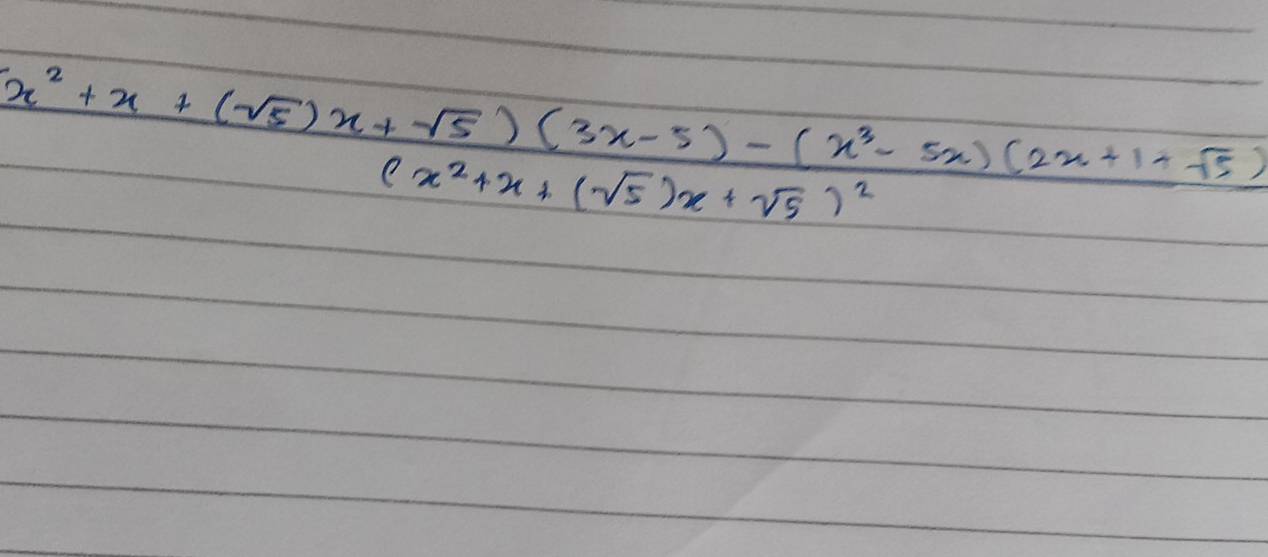 (x² + x + (√5)x + √5)(3x - 5) - (x³ - 5x)(2x + 1 + √5)
(x² + x + (√5)x + √5)²